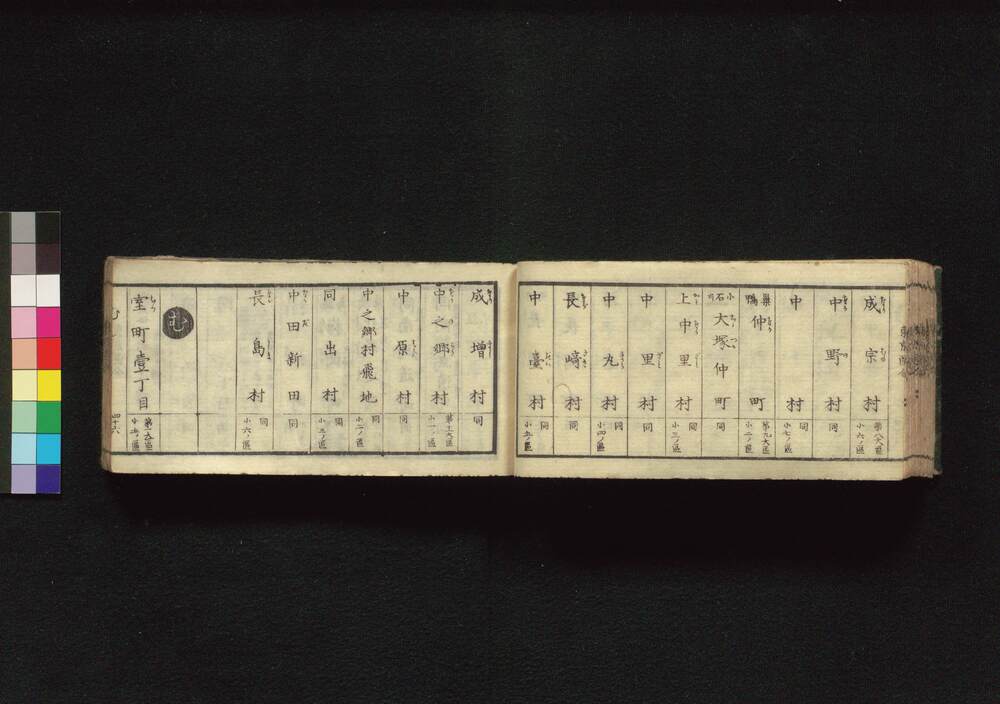 成宗村
第八大區
小六ノ區
中野村
同
中村
同
小七ノ區
巣鴨仲町
第九大區
小二ノ區
小石川大塚仲町
同
上中里村
同
小三ノ區
中里村
同
中丸村
同
小四ノ區
長崎村
同
中臺村
同
小五ノ區
成増村
同
中之郷村
第十一大區
小一ノ區
中原村
同
中之郷村飛地
同
小二ノ區
同出村
同
小三ノ區
中田新田
同
長島村
同
小六ノ區
む
室町壹丁目
第一大區
む
四十六